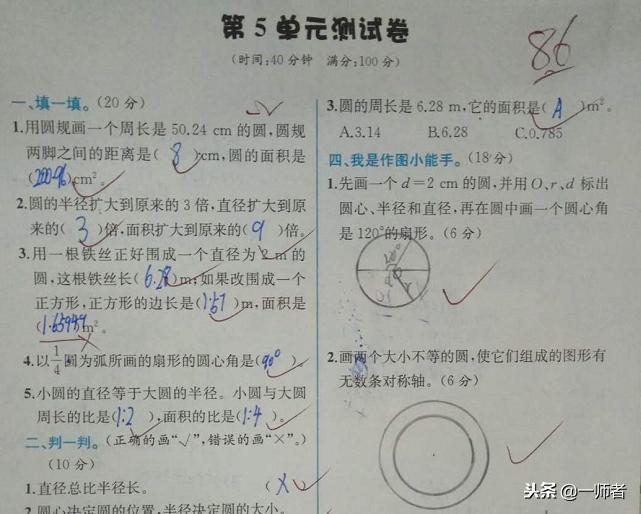 第5单元测试卷
(时间:40分钟 满分:100分)
86
一、填一填。(20分)
1.用圆规画一个周长是50.24 cm的圆,圆规
两脚之间的距离是( 8 )cm,圆的面积是
(200.96)cm²。
2.圆的半径扩大到原来的3倍,直径扩大到原
来的( 3 )倍,面积扩大到原来的( 9 )倍。
3.用一根铁丝正好围成一个直径为2 m的
圆,这根铁丝长(6.28)m;如果改围成一个
正方形,正方形的边长是(1.57)m,面积是
( )m²。
4.以1/4圆为弧所画的扇形的圆心角是(90°)。
5.小圆的直径等于大圆的半径。小圆与大圆
周长的比是(1:2),面积的比是(1:4)。
二、判一判。(正确的画“√”,错误的画“×”。)
(10分)
1.直径总比半径长。 (×
2.圆心决定圆的位置,半径决定圆的大小。
3.圆的周长是6.28 m,它的面积是( A )m²。
A.3.14 B.6.28 C.0.785
四、我是作图小能手。(18分)
1.先画一个d=2 cm的圆,并用O、r、d标出
圆心、半径和直径,再在圆中画一个圆心角
是120°的扇形。(6分)
2.画两个大小不等的圆,使它们组成的图形有
无数条对称轴。(6分)
头条@一师者